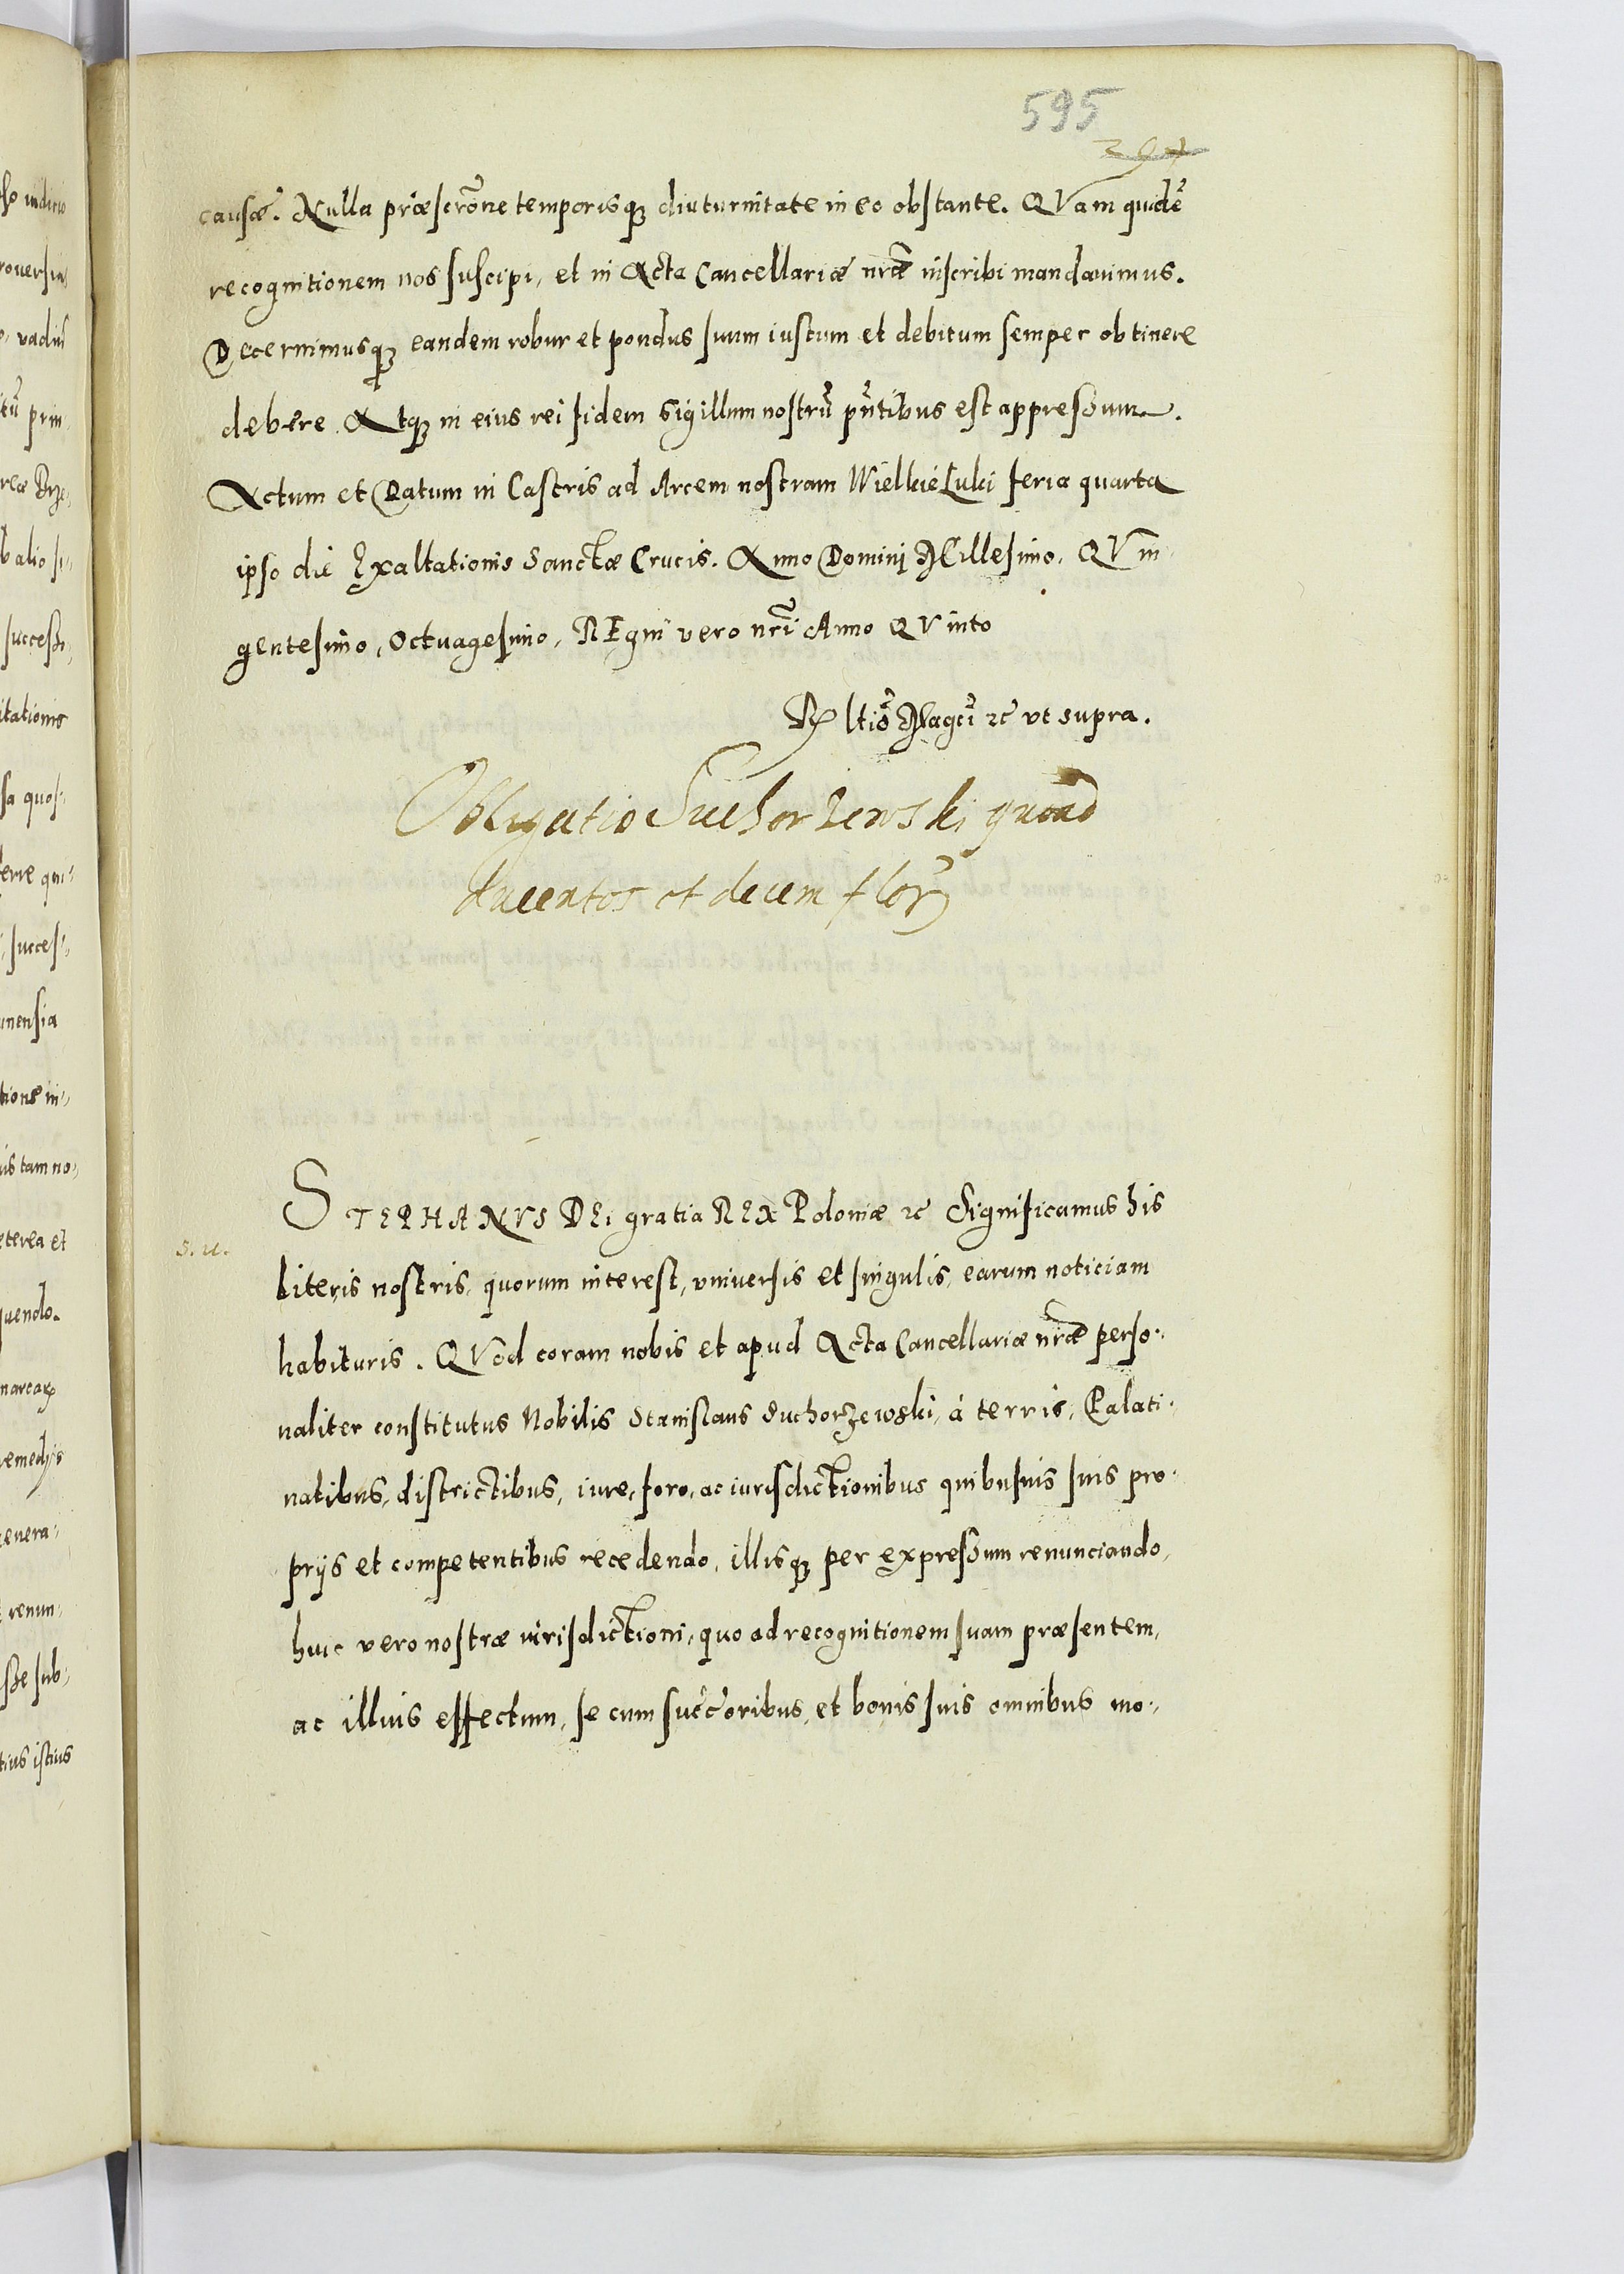 595
causæ. Nulla præscrõne temporisq; diuturnitate in eo obstante. QVam quidē
recognitionem nos suscipi, et in Acta Cancellariæ nr̃æ inscribi mandauimus.
Decernimusq; eandem robur et pondus suum iustum et debitum semper obtinere
debere. Atq; in eius rei fidem Sigillum nostrū pn̄tibus est appressum.
Actum et Datum in Castris ad Arcem nostram Wielkie Luki feria quarta
ipso die Exaltationis Sanctæ Crucis. Anno Dominj Millesimo, QVin
gentesimo, Octuagesimo, REgni vero nr̃i Anno QVinto
Rltiõ Magci ꝛc vt supra.
Obligatio Suchorzewski quoad
ducentos et decem flor
STEPHANVS DEi gratia REX Poloniæ ꝛc Significamus his
S. u.
literis nostris, quorum interest, vniuersis et singulis, earum noticiam
habituris. QVod coram nobis et apud Acta Cancellariæ nr̃æ perso-
naliter constitutus Nobilis Stanislaus Suchorzewski, à terris, Palati-
natibus, districtibus, iure, foro, ac iurisdictionibus quibusuis suis pro-
prijs et competentibus recedendo, illisq; per expressum renunciando,
huic vero nostræ iurisdictioni, quo ad recognitionem suam præsentem,
ac illius effectum, se cum succoribus, et bonis suis omnibus mo-